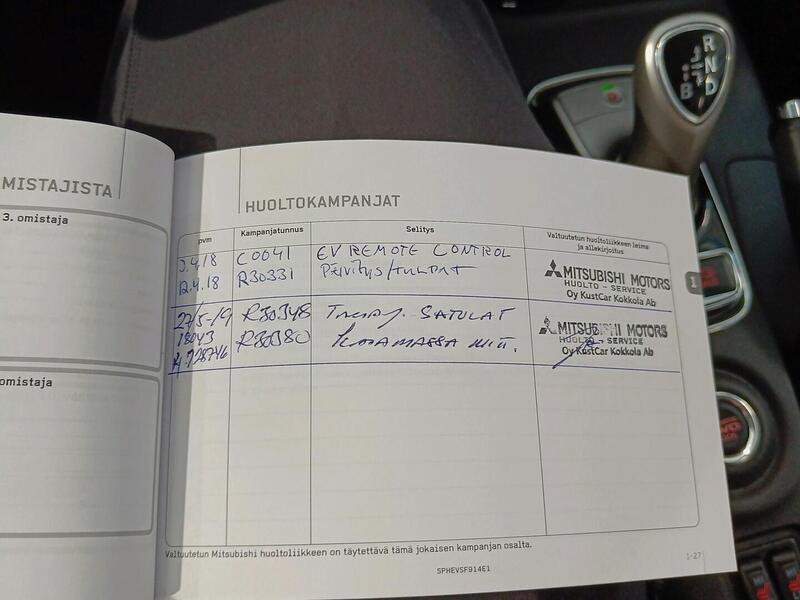 MISTAJISTA
3. omistaja
omistaja
HUOLTOKAMPANJAT
pvm
Kampanjatunnus
Selitys
Valtuutetun huoltoliikkeen leima
ja allekirjoitus
3.4.18 C0041 EV REMOTE CONTROL
12.4.18 R30331
MITSUBISHI MOTORS
HUOLTO - SERVICE
Oy KustCar Kokkola Ab
27/5-19 R30348 SATULAT
18043 R30380
MITSUBISHI MOTORS
HUOLTO - SERVICE
Oy KustCar Kokkola Ab
Valtuutetun Mitsubishi huoltoliikkeen on täytettävä tämä jokaisen kampanjan osalta.
1-27
5PHEVSF914E1
1
R
N
D
B